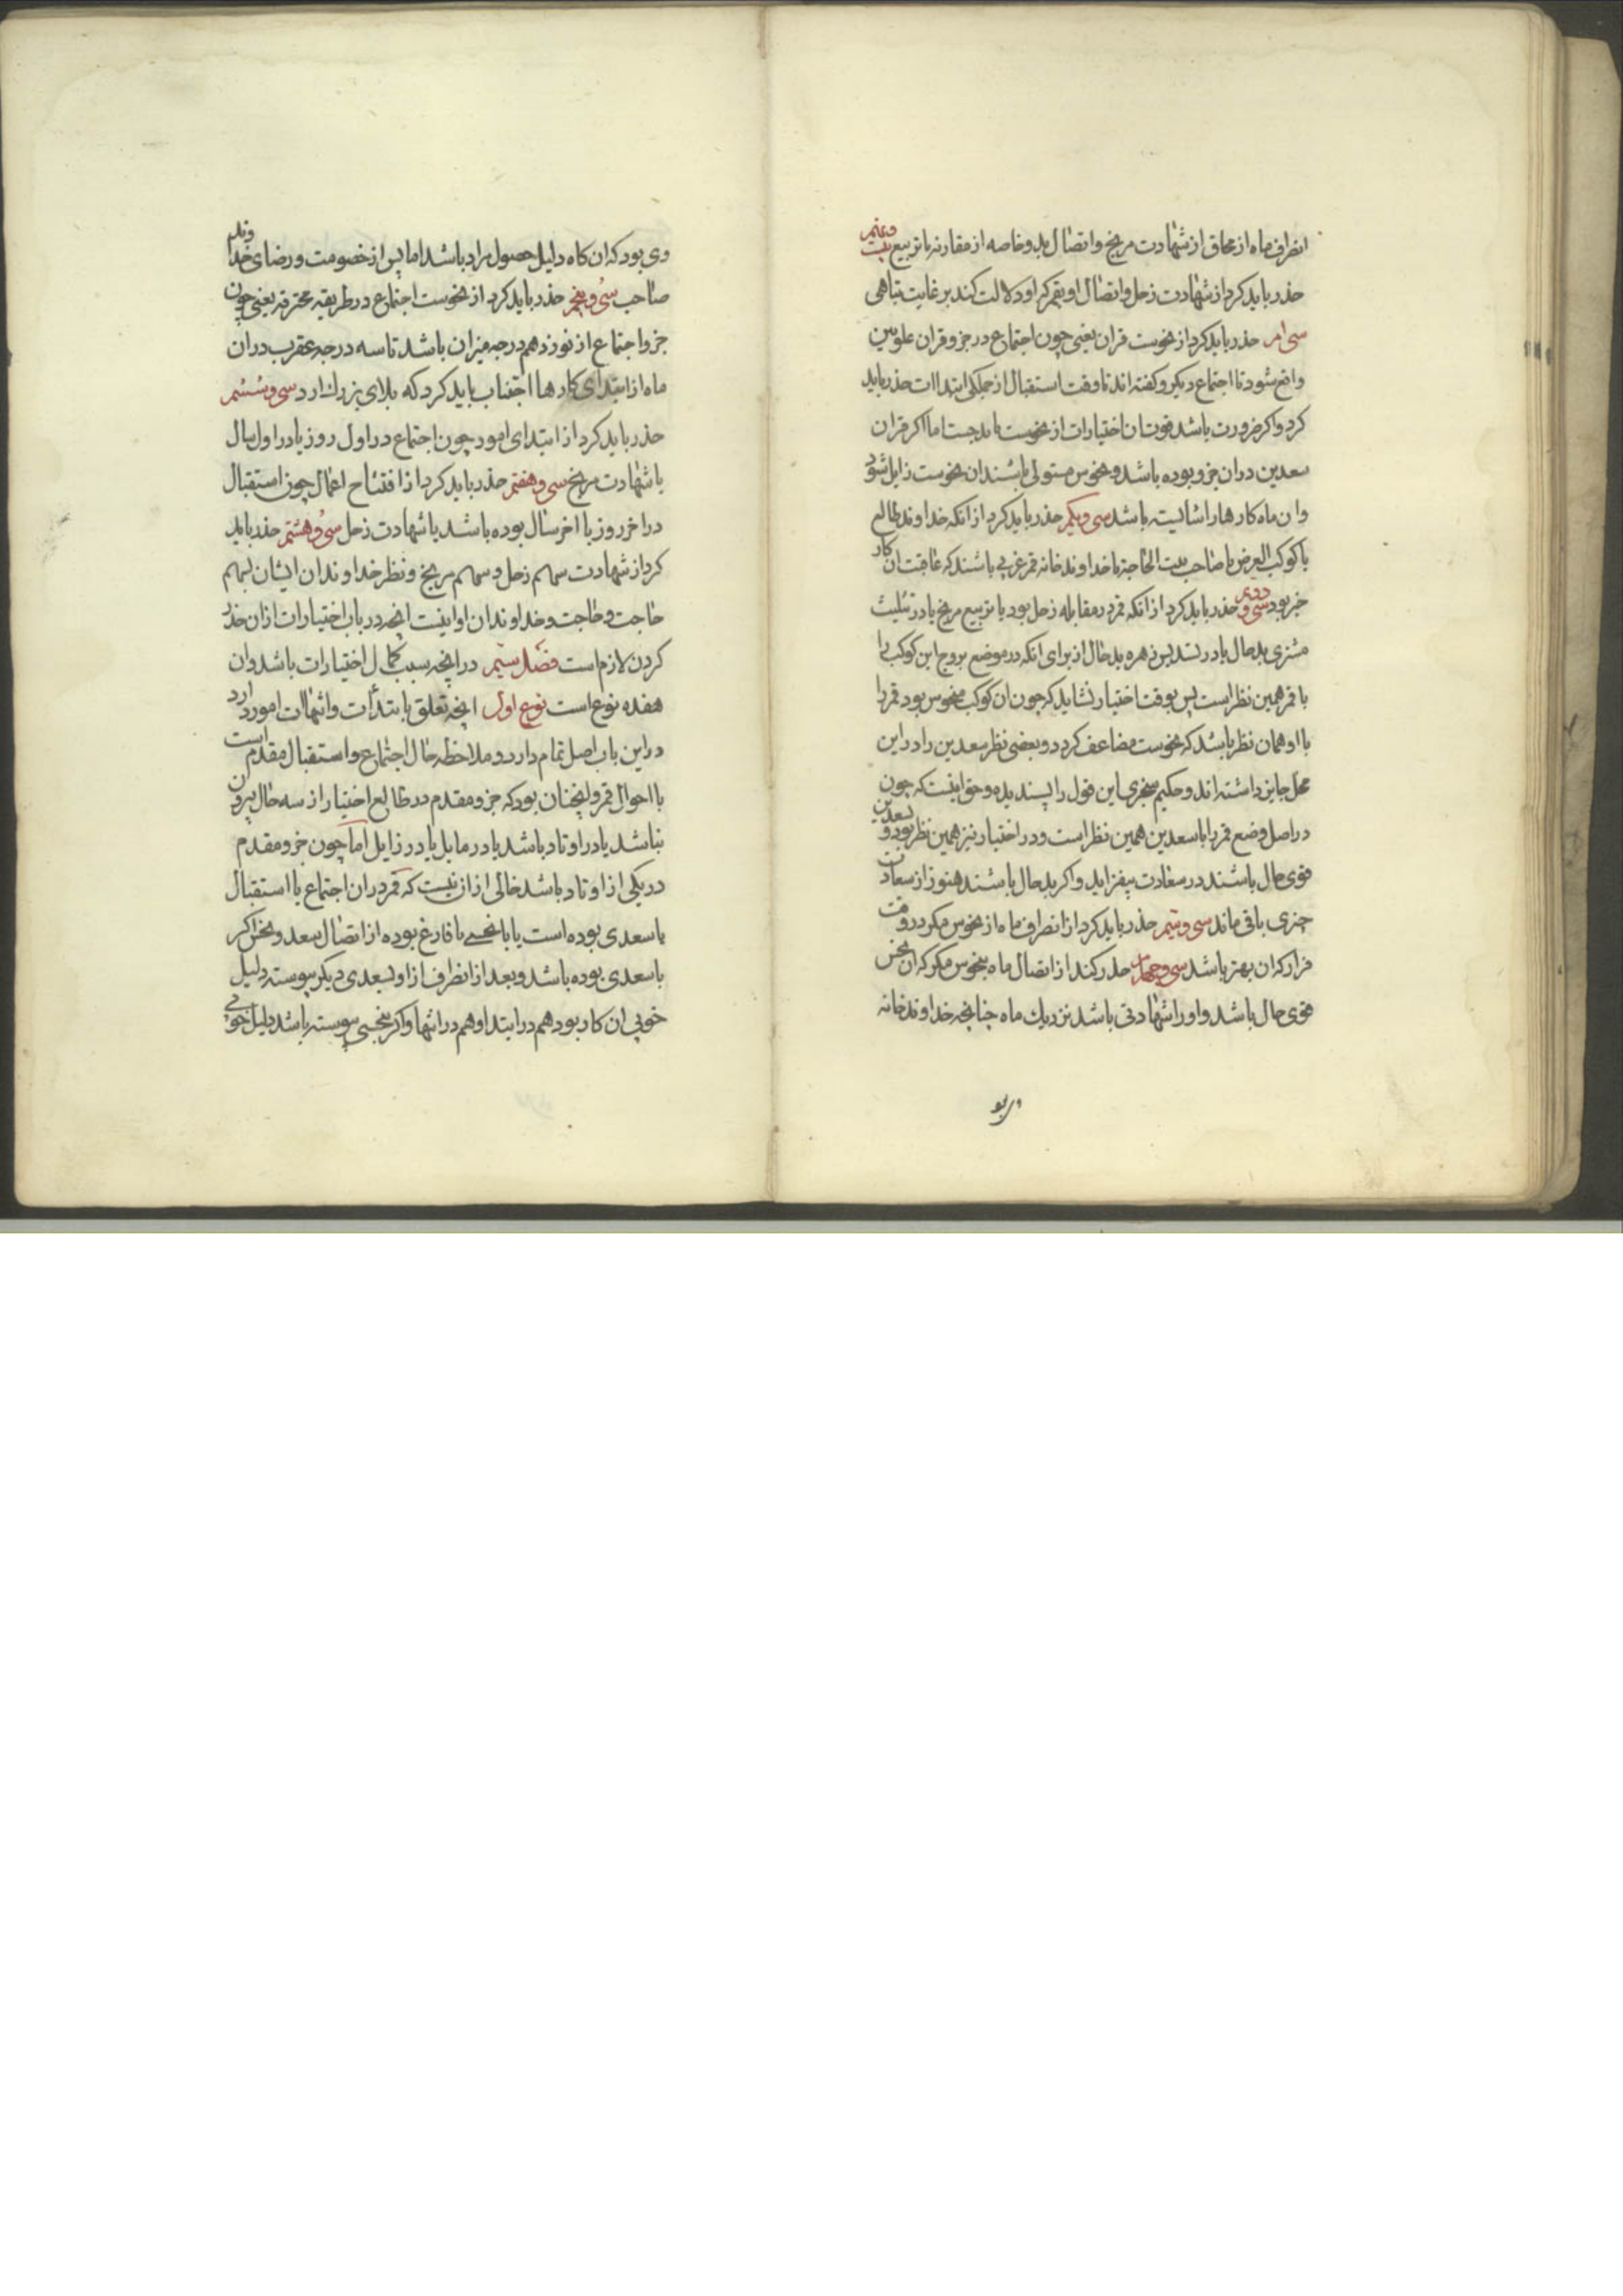 انصراف ماه از محاق از شهادت مریخ و اتصال بدو خاصه از مقارنه یا تربیع بیست ونهم
حذر باید کرد از شهادت زحل و اتصال او بقمر که او دلالت کند بر غایت تباهی
سی ام حذر باید کرد از نحوست قران یعنی چون اجتماع در جزو قران علویین
واقع شود تا اجتماع دیکر و کفته اند تا وقت استقبال از جملکی ابتداات حذر باید
کرد و اکر ضرورت باشد اختیارات از نحوست باید جست اما اکر قران
سعدین دران جزو بوده باشد و نحوس مستولی باشند ان نحوست زایل شود
و ان ماه کارها را شایسته باشد سی ویکم حذر باید کرد از انکه خداوند طالع
یا کوکب الغرض یا صاحب بیت الحاجة یا خداوند خانه قمر غربی باشند که عاقبت ان کار
خیر بود سی و دوم حذر باید کرد از انکه قمر در مقابله زحل بود یا تربیع مریخ یا در تثلیث
مشتری بدحال یا در تسدیس زهره بدحال از برای انکه در موضع بروج این کوکب را
با قمر همین نظر است پس بوقت اختیار نشاید که چون ان کوکب منحوس بود قمر را
با او همان نظر باشد که نحوست مضاعف کردد و بعضی نظر سعدین را در این
محل جایز داشته اند و حکیم سجزی این قول را پسندیده و حق اینست که چون
در اصل وضع قمر را با سعدین همین نظر است و در اختیار نیز همین نظر بود و سعدین
قوی حال باشند در سعادت بیفزاید و اکر بدحال باشند هنوز از سعادت
چیزی باقی ماند سی وسیم حذر باید کرد از انصراف ماه از نحوس مکر در وقت
فرار که ان بهتر باشد سی وچهارم حذر کند از اتصال ماه بنحوس مکر که ان نحس
قوی حال باشد و او را شهادتی باشد نزدیک ماه چنانچه خداوند خانه
وی بو
وی بود که ان کاه دلیل حصول مراد باشد اما پس از خصومت و رضای خداوند
صاحب سی وپنجم حذر باید کرد از نحوست اجتماع در طریقه محترقه یعنی چون
جزو اجتماع از نوزدهم درجه میزان باشد تا سه درجه عقرب دران
ماه از ابتدای کارها اجتناب باید کرد که بلای بزرک ارد سی وششم
حذر باید کرد از ابتدای امور چون اجتماع در اول روز یا در اول سال
با شهادت مریخ سی وهفتم حذر باید کرد از افتتاح اعمال چون استقبال
در اخر روز یا اخر سال بوده باشد با شهادت زحل سی وهشتم حذر باید
کرد از شهادت سهم زحل و سهم مریخ و نظر خداوندان ایشان بسهم
حاجت و حاجت و خداوندان او اینست انچه در باب اختیارات ازان حذر
کردن لازم است فصل سیم در انچه سبب کمال اختیارات باشد وان
هفده نوع است نوع اول انچه تعلق بابتدآت وانتهاات امور دارد
در این باب اصل تمام دارد و ملاحظه حال اجتماع و استقبال مقدم است
با احوال قمر و اینچنان بود که جزو مقدم در طالع اختیار از سه حال بیرون
نباشد یا در اوتاد باشد یا در مایل یا در زایل اما چون جزو مقدم
در یکی از اوتاد باشد خالی ازان نیست که قمر دران اجتماع یا استقبال
با سعدی بوده است یا با نحسی یا فارغ بوده از اتصال سعد و نحس اکر
با سعدی بوده باشد و بعد از انصراف ازاو بسعدی دیکر پیوسته دلیل
خوبی ان کار بود هم در ابتدا و هم در انتها و اکر بنحسی پیوسته باشد دلیل خوبی